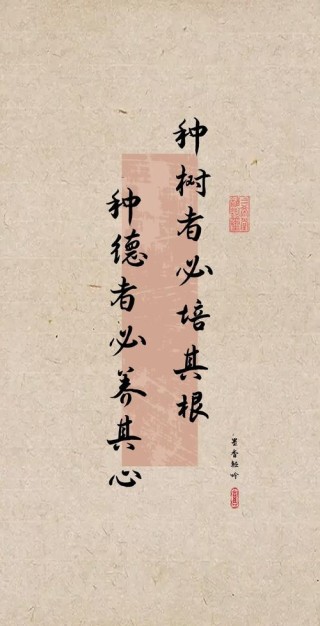 种树者必培其根
种德者必养其心
墨香轻吟